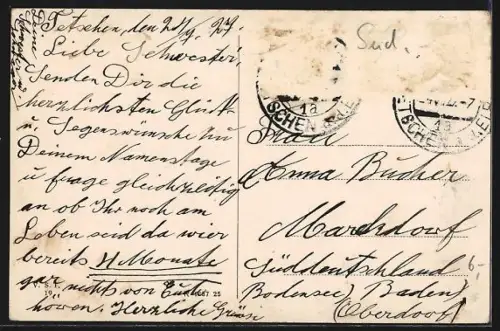 Tetschen, den 24/4. 27.
Liebe Schwester!
Senden Dir die
herzlichsten Glück-
u. Segenswünsche zu
Deinem Namenstage
u frage gleichzeitig
an ob Ihr noch am
Leben seid da wier
bereits 4 Monate
gar nichts von Euch
hören. Herzliche Grüsse
Deine Schwester
Süd.
1a
TSCHEN
1a
TSCHEN
Frau
Anna Bucher
Marchdorf
Süddeutschland
Bodensee, Baden
(Oberdorf)
6,-